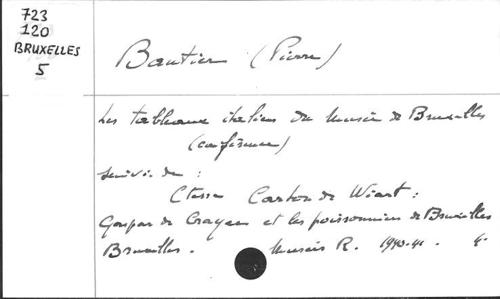 723
120
BRUXELLES
5
Bautier (Pierre)
Les tableaux italiens du Musée de Bruxelles
(conférence)
suivi de :
Ctesse Carton de Wiart :
Gaspar de Crayer et les poissonniers de Bruxelles
Bruxelles. Musées R. 1940-41. 4°